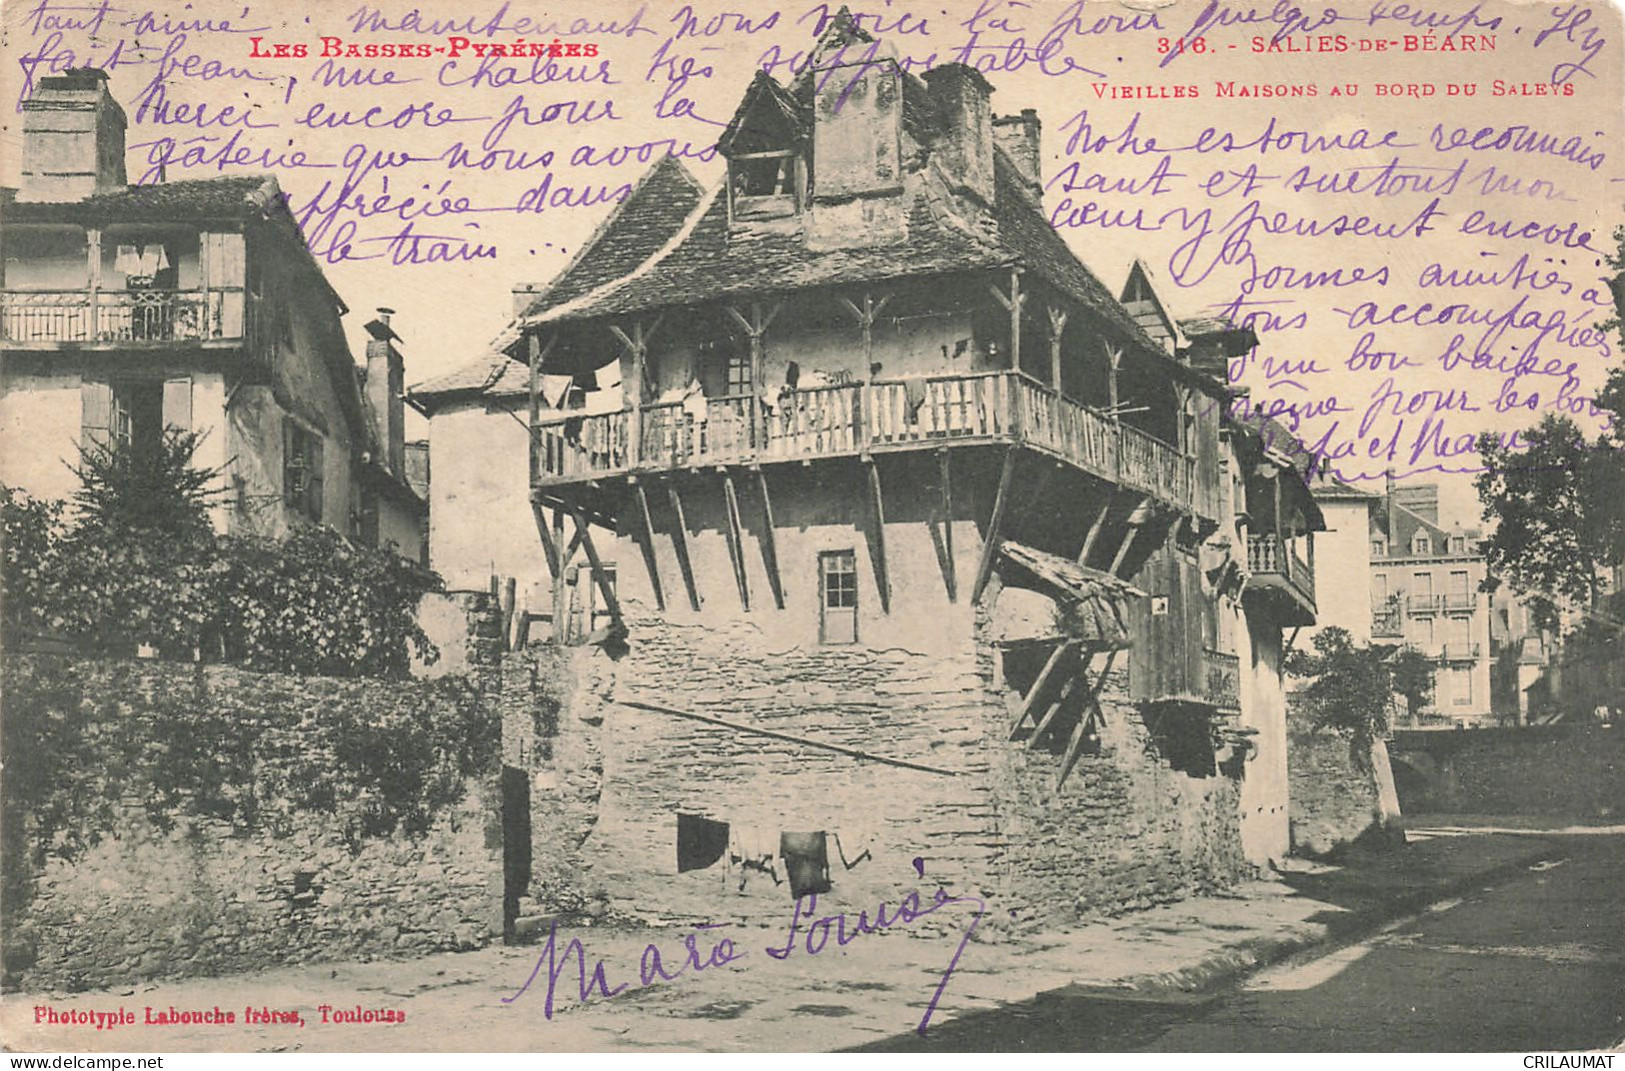 tant aimé. Maintenant nous voici là pour quelque temps. Il y
fait beau, une chaleur très supportable.
Merci encore pour la
gâterie que nous avons
appréciée dans
le train ...
LES BASSES-PYRÉNÉES
316. - SALIES-DE-BÉARN
VIEILLES MAISONS AU BORD DU SALEYS
Notre estomac reconnais-
sant et surtout mon
cœur y pensent encore.
Bonnes amitiés à
tous accompagnées
d'un bon baiser
même pour les
Marie Louise
Phototypie Labouche frères, Toulouse
CRILAUMAT